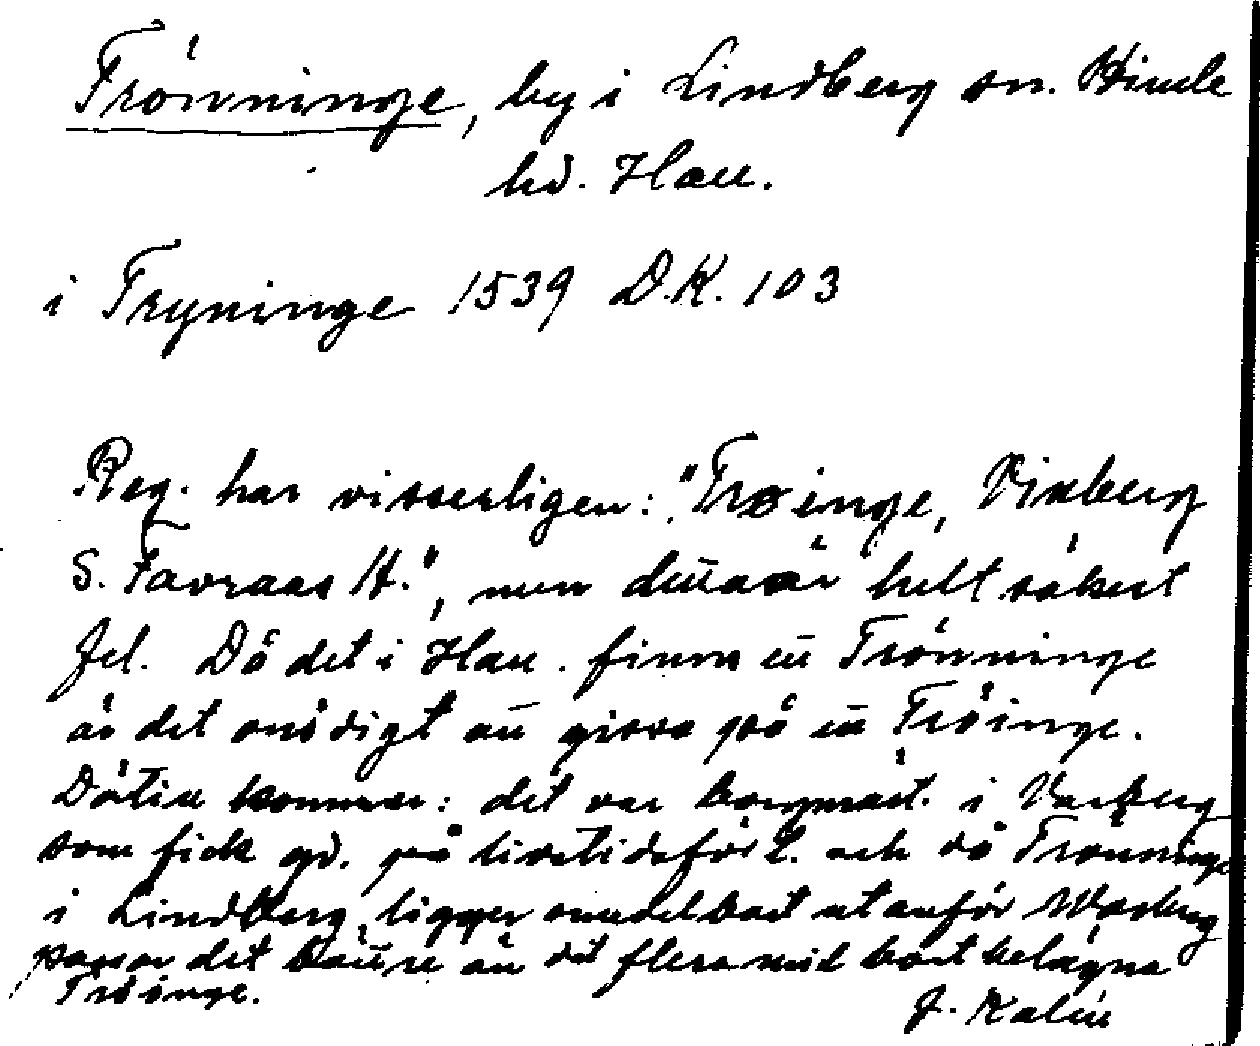 Trönninge, by i Lindberg sn. Himle
hd. Hall.
i Tryninge 1539 D.K. 103
Reg. har visserligen: "Trøinge, Vinberg
S. Favraas H.", men detta är helt säkert
fel. Då det i Hall. finns ett Trönninge
är det onödigt att gissa på ett Tröinge.
Därtill kommer: det var borgmäst. i Varberg
som fick gd. på livstidsförl. och då Trönninge
i Lindberg ligger omedelbart utanför Warberg
passar det bättre än det flera mil bort belägna
Tröinge.
J. Kalén